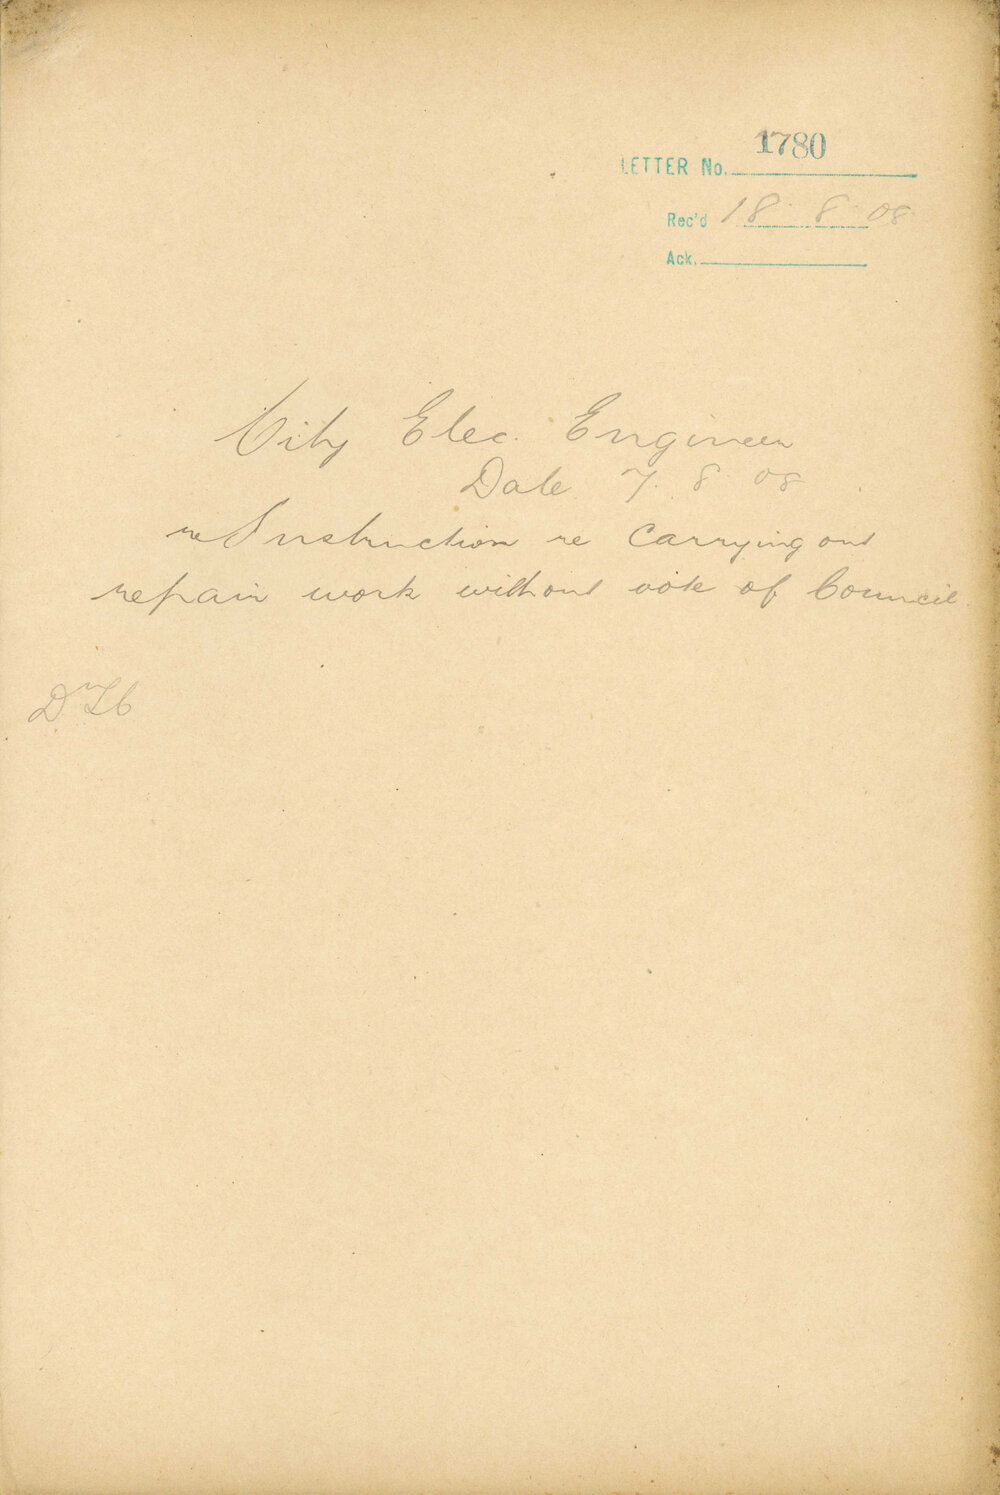 LETTER No. 1780
Rec'd 18.8.08
Ack.
City Elec. Engineer
Date 7.8.08
re Instruction re Carrying out
repair work without vote of Council.